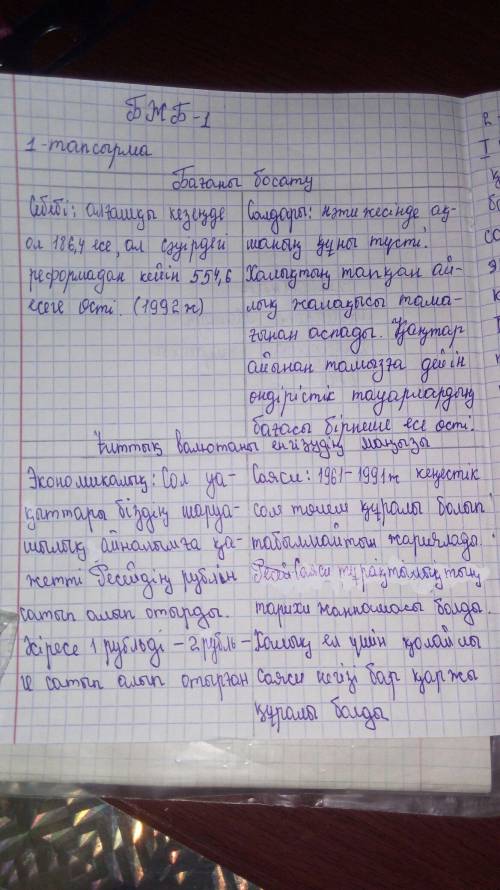 БЖБ-1
1-тапсырма
Бағаны босату
Себебі: алғашқы кезеңде
ол 186,4 есе, ал сәуірдегі
реформадан кейін 554,6
есеге өсті. (1992 ж)
Салдары: нәтижесінде ақ-
шаның құны түсті.
Халықтың тапқан ай-
лық жалақысы тама-
ғынан аспады. Қаңтар
айынан тамызға дейін
өндірістік тауарлардың
бағасы бірнеше есе өсті.
Ұлттық валютаны енгізудің маңызы
Экономикалық: Сол уа-
қыттары біздің шаруа-
шылық айналымға қа-
жетті Ресейдің рублін
сатып алып отырды.
Әсіресе 1 рубльді - 2 рубль-
ге сатып алып отырған
Саяси: 1961-1991 ж кеңестік
сом төлем құралы болып
табылмайтын жарияланды.
Саяси тұрақтылықтың
тарихи жалғасы болды.
Халық ел үшін қолайлы
Саяси негізі бар қаржы
құралы болды